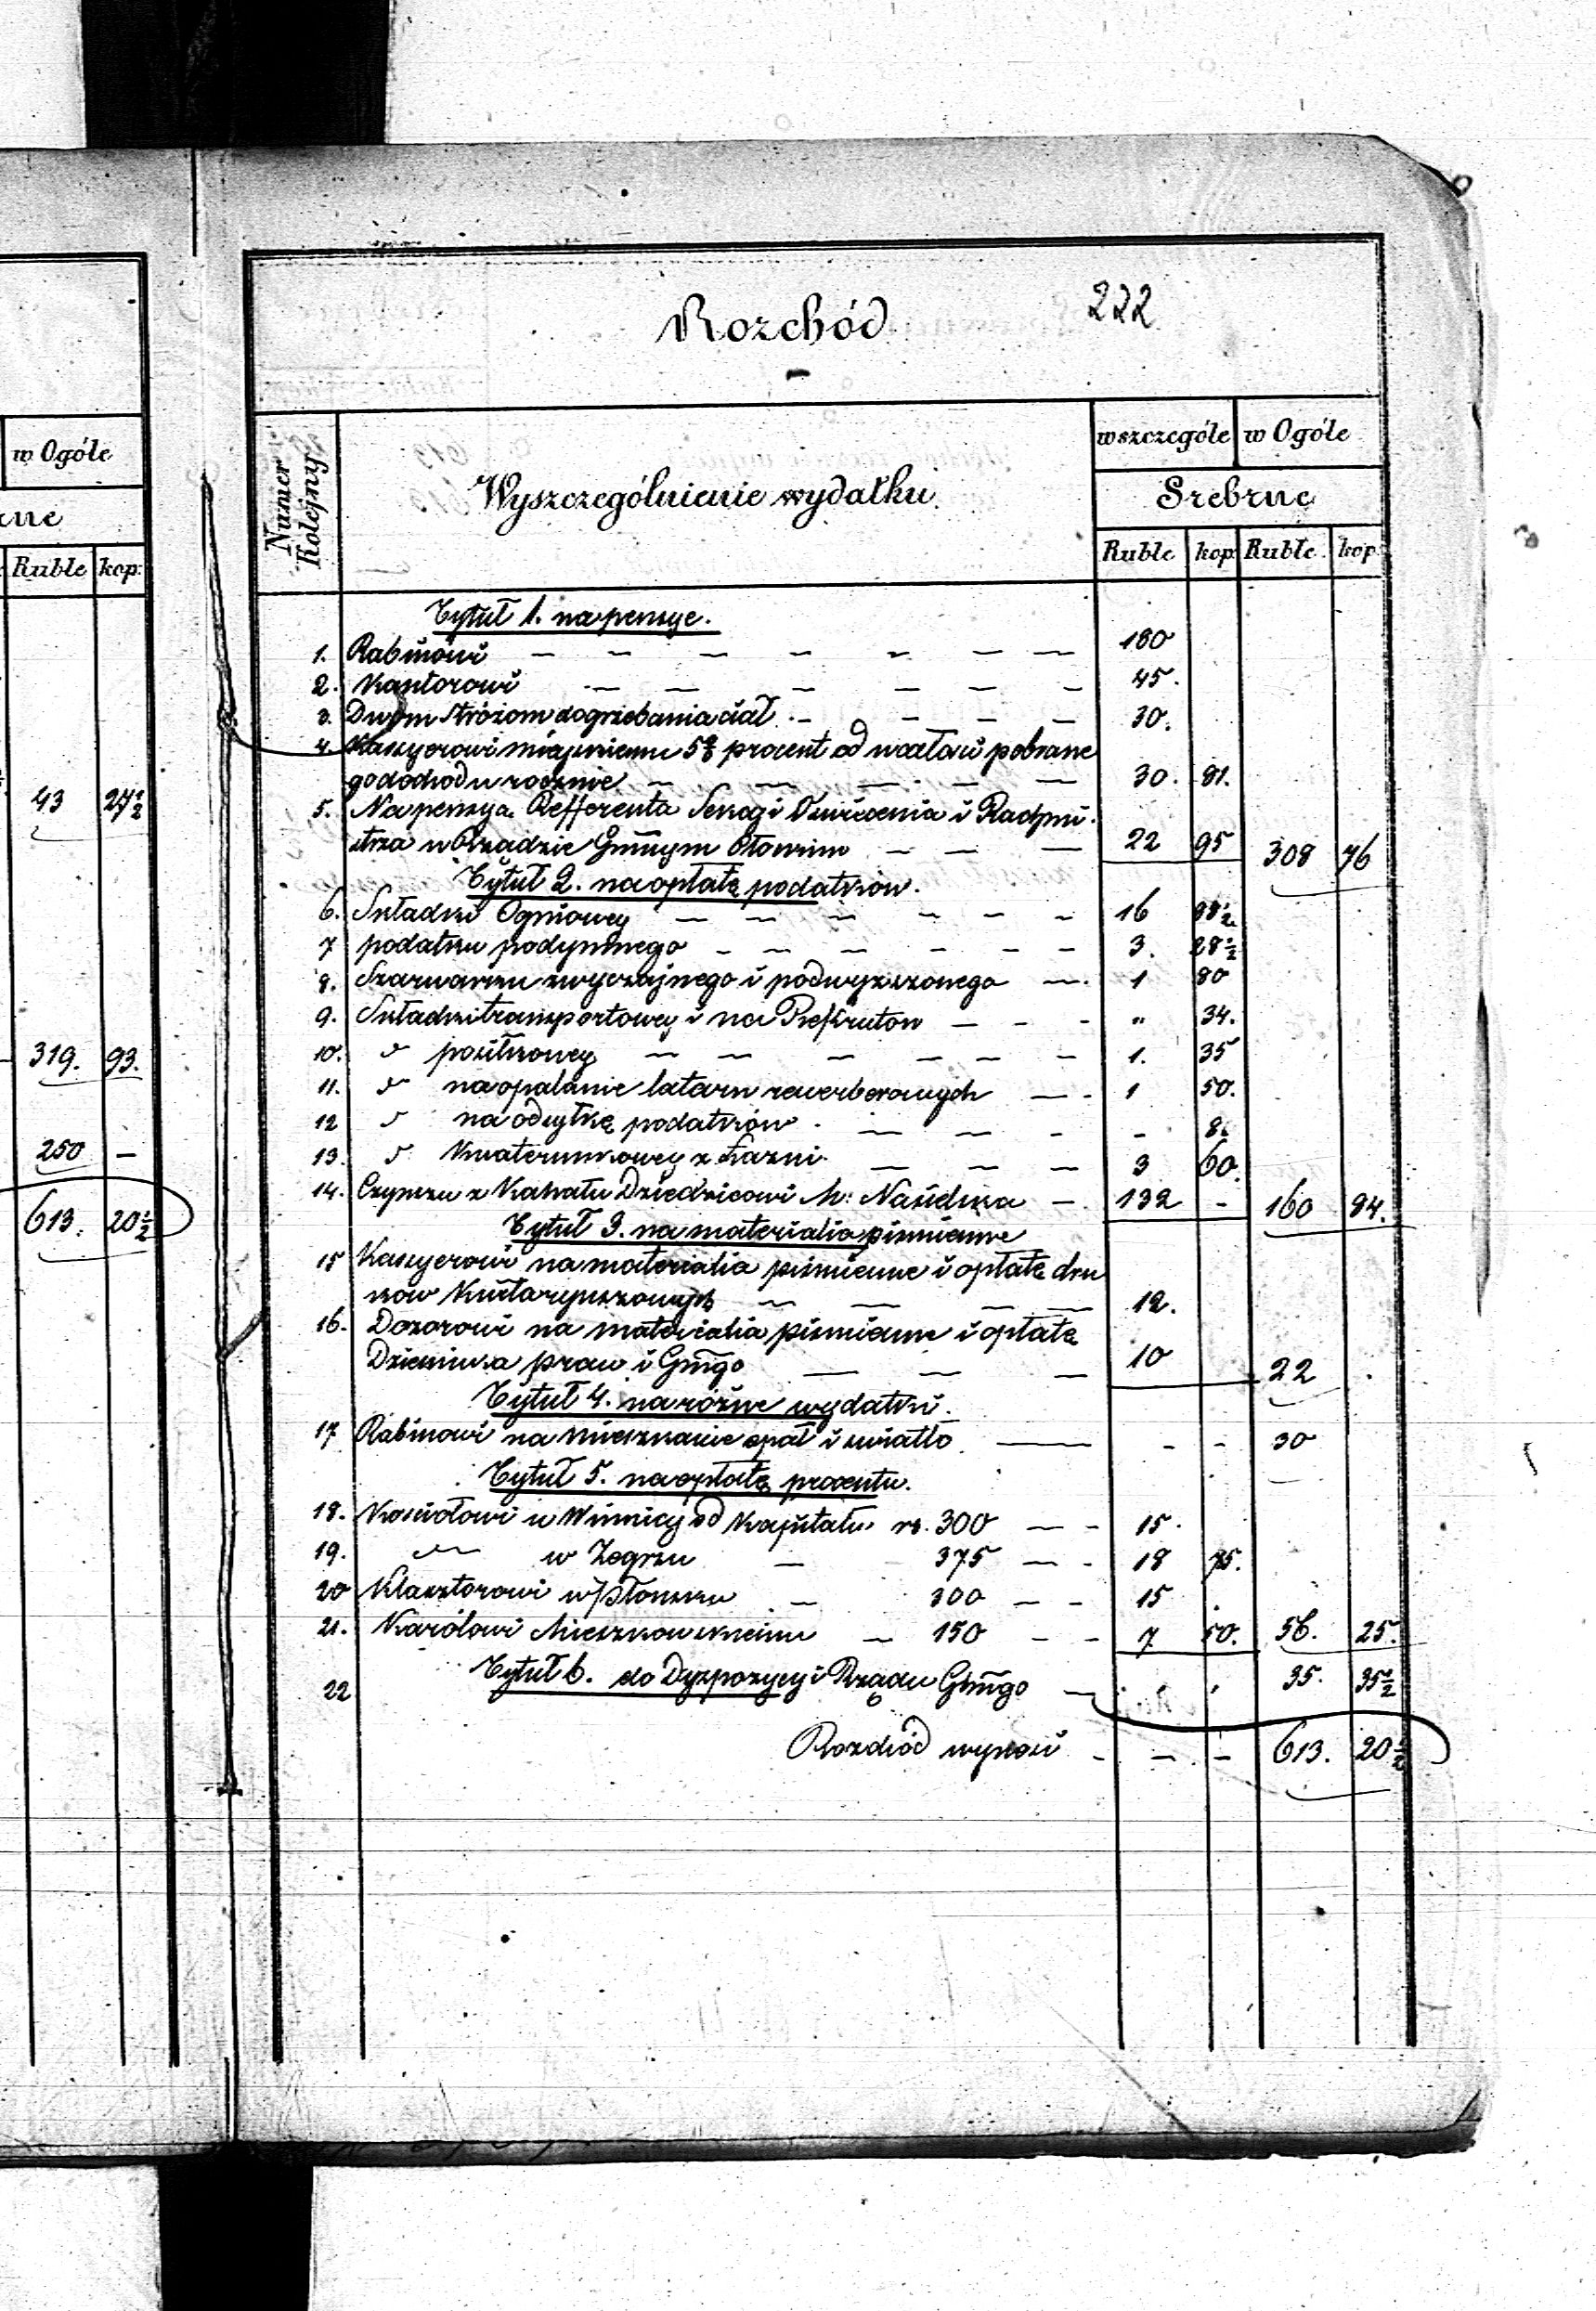 w Ogóle
rne
Ruble kop:
43 27½
319. 93.
250 —
613. 20½
Rozchód
222
Numer Kolejny
Wyszczególnienie wydatku
wszczególe w Ogóle
Srebrne
Ruble kop: Ruble kop:
Tytuł 1. na pensye.
1. Rabinowi — — — — — — — 180
2. Kantorowi — — — — — — 45.
3. Dwom Stróżom do grzebania ciał — — — — 30.
4. Kassyerowi miejskiemu 5% procent od wcałości pobrane
go dochodu rocznie — — — — — 30. 81.
5. Na pensyą Refferenta Sekcyi Oświecenia i Rachmi
strza w Rządzie Gūnym Płockim — — — 22 95 308 76
Tytuł 2. na opłatę podatków.
6. Składki Ogniowey — — — — — — 16 98½
7 podatku podymnego — — — — — — 3. 28½
8. Szarwarku zwyczajnego i podwyższonego — 1 80
9. Składki transportowey i na Rekrutow — — - " 34.
10. d° positkowey — — — — — — 1. 35
11. d° na opalanie latarn rewerberowych — - 1 50.
12 d° na odsyłkę podatków - — — - - 8.
13. d° Kwaterunkowey z Łazni — — — 3 60.
14. Czynszu z Kahału Dziedzicowi M: Nasielska — 132 - 160 94.
Tytuł 3. na materialia piśmienne
15 Kassyerowi na materialia piśmienne i opłatę dru
kow Kwitaryuszowych — — — — 12.
16. Dozorowi na materialia piśmienne i opłatę
Dziennika praw i Gūngo — — — 10 22 .
Tytuł 4. na rożne wydatki.
17 Rabinowi na mieszkanie opał i swiatło — - - 30
Tytuł 5. na opłatę procentu.
18. Kosciołowi w Winnicy od Kapitału rs. 300 — - 15.
19. " w Zegrzu — 375 — - 18 75.
20 Klasztorowi w Płonsku — 300 — - 15 .
21. Karólowi Mieszkowskiemu — 150 — - 7 50. 56. 25.
22 Tytuł 6. do Dyspozycyi Rządu Gūngo — . . . 35. 35½
Rozchód wynosi - — - 613. 20½